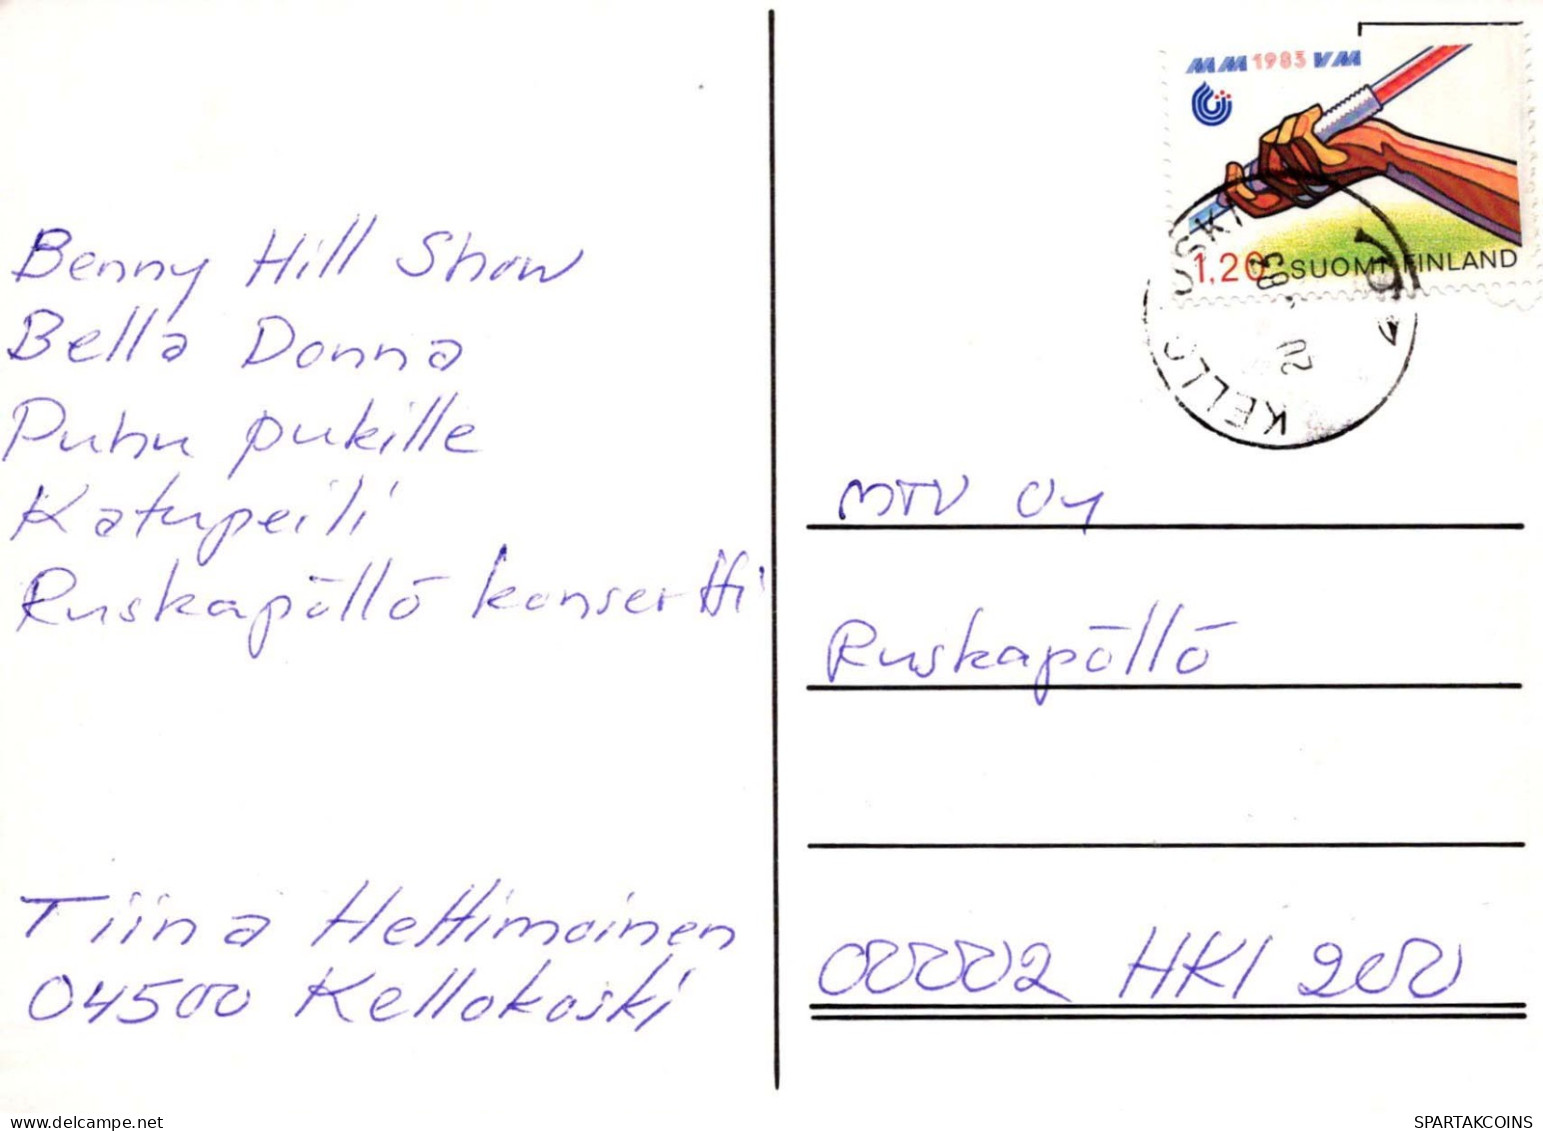 Benny Hill Show
Bella Donna
Puhu pukille
Katupeili
Ruskapöllö konsertti
Tiina Hettimoinen
04500 Kellokoski
MM 1983 VM
1,20 SUOMI FINLAND
KELLOKOSKI
20
83
MTV Oy
Ruskapöllö
00002 HKI 200
SPARTAKCOINS